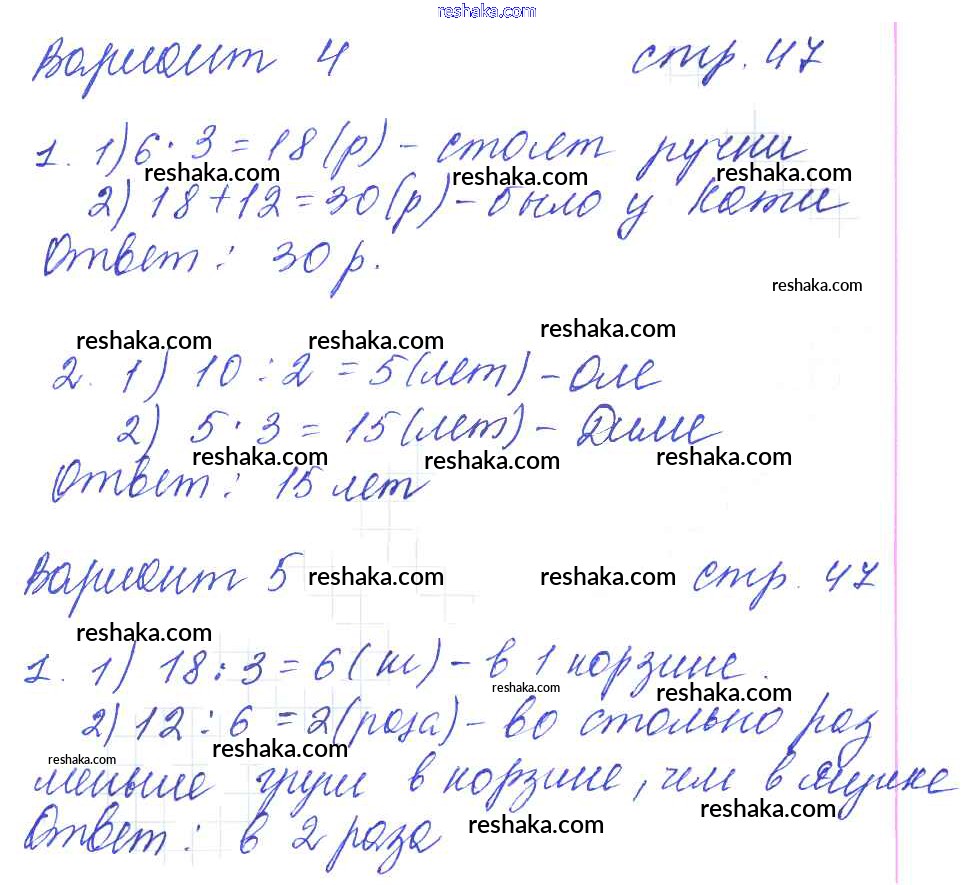 reshaka.com
Вариант 4 стр. 47
1. 1) 6 · 3 = 18 (р) - стоят ручки
reshaka.com reshaka.com reshaka.com
2) 18 + 12 = 30 (р) - было у Кати
Ответ: 30 р.
reshaka.com
reshaka.com reshaka.com reshaka.com
2. 1) 10 : 2 = 5 (лет) - Оле
2) 5 · 3 = 15 (лет) - Диме
reshaka.com reshaka.com reshaka.com
Ответ: 15 лет
Вариант 5 reshaka.com reshaka.com стр. 47
reshaka.com
1. 1) 18 : 3 = 6 (кг) - в 1 корзине.
reshaka.com reshaka.com
2) 12 : 6 = 2 (раза) - во столько раз
reshaka.com reshaka.com
меньше груш в корзине, чем в ящике
reshaka.com reshaka.com
Ответ: в 2 раза